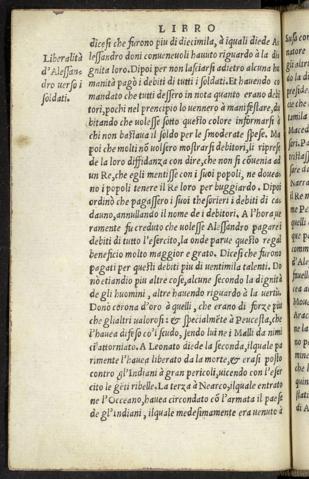 LIBRO
dicesi che furono piu di diecimila, à iquali diede A
Liberalità
d'Alessan
dro uerso i
soldati.
lessandro doni conueneuoli hauuto riguardo à la di
gnita loro. Dipoi per non lasciarsi adietro alcuna hu
manità pagò i debiti di tutti i soldati. Et hauendo co
mandato che tutti dessero in nota quanto erano debi
tori, pochi nel prencipio lo uennero à manifestare, du
bitando che uolesse sotto questo colore informarsi à
chi non bastaua il soldo per le smoderate spese. Ma
poi che molti nō uolsero mostrarsi debitori, li riprese
de la loro diffidanza con dire, che non si cōuenia ad
un Re, che egli mentisse con i suoi popoli, ne doueano
no i popoli tenere il Re loro per buggiardo. Dipoi
ordinò che pagassero i suoi thesorieri i debiti di cia
dauno, annullando il nome de i debitori. A l'hora ue
ramente fu creduto che uolesse Alessandro pagare i
debiti di tutto l'essercito, la onde parue questo regal
beneficio molto maggior e grato. Dicesi che furono
pagati per questi debiti piu di uentimila talenti. Do
nò etiandio piu altre cose, alcune secondo la dignità
de gli huomini, altre hauendo riguardo à la uertù.
Donò corona d'oro à quelli, che erano di forze piu
che gli altri ualorosi: & specialmēte à Peucesta, che
l'hauea difeso co'l scudo, sendo lui ne i Malli da nimi
ci attorniato. A Leonato diede la seconda, ilquale pa
rimente l'hauea liberato da la morte, & erasi posto
contro gl'Indiani à gran pericoli, uicendo con l'esser
cito le gēti ribelle. La terza à Nearco, ilquale entrato
ne l'Occeano, hauea circondato cō l'armata il paese
de gl'Indiani, ilquale medesimamente era uenuto à